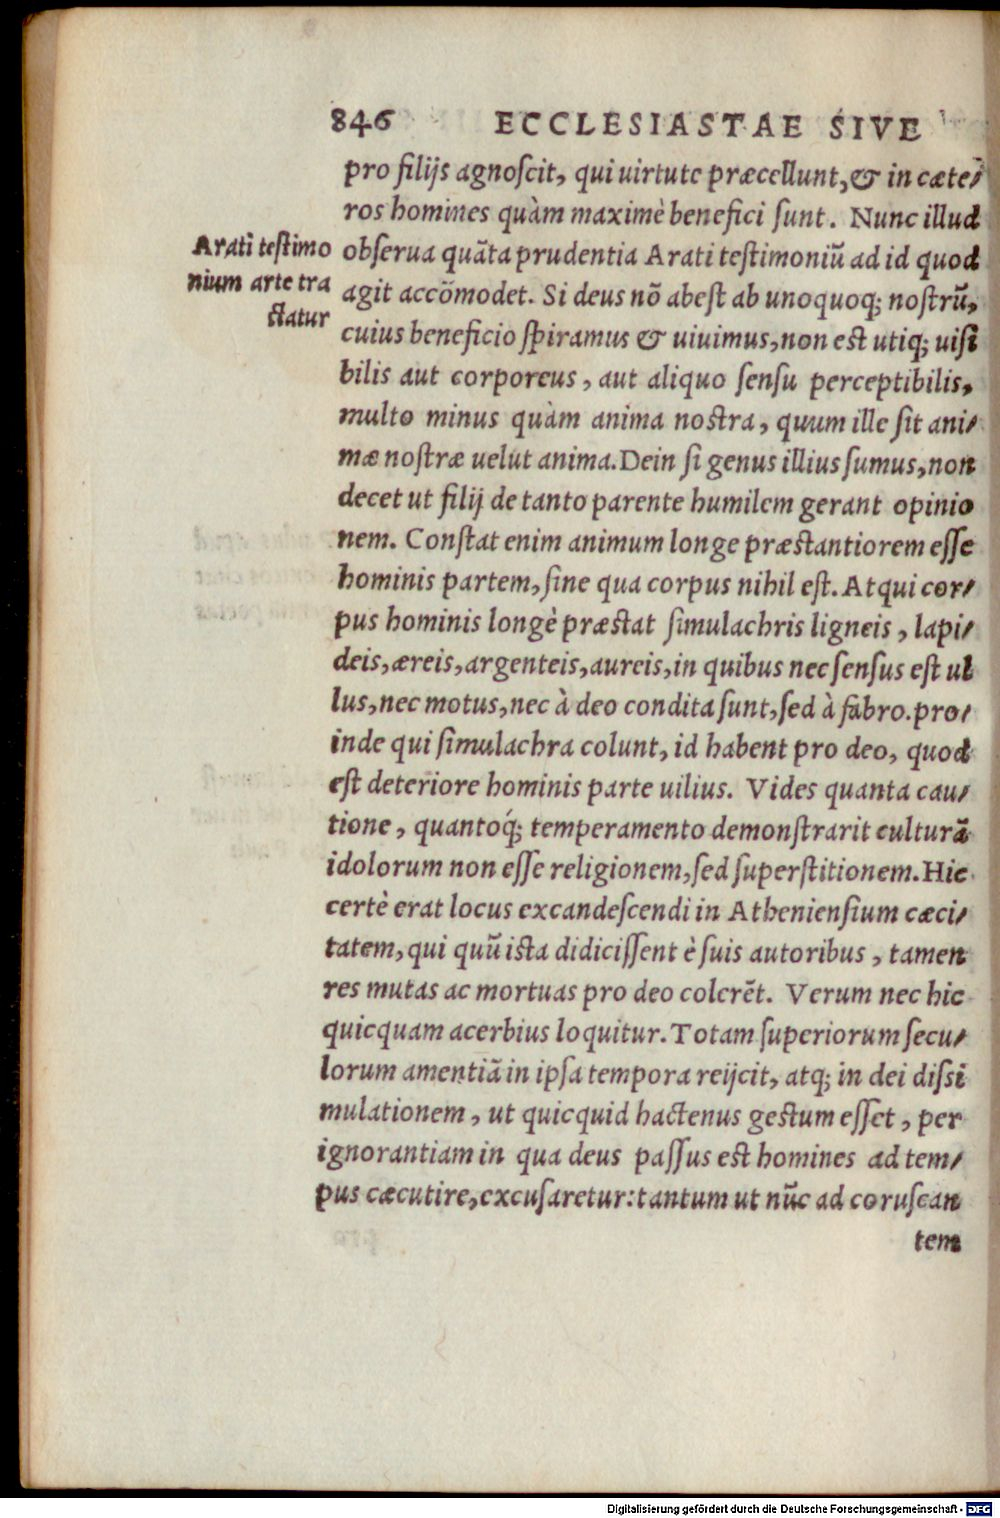 846 ECCLESIASTAE SIVE
pro filijs agnoscit, qui uirtute præcellunt, & in cæte/
ros homines quàm maximè benefici sunt. Nunc illud
Arati testimo
nium arte tra
ctatur
obserua quãta prudentia Arati testimoniũ ad id quod
agit accõmodet. Si deus nõ abest ab unoquoq; nostrũ,
cuius beneficio spiramus & uiuimus, non est utiq; uisi
bilis aut corporeus, aut aliquo sensu perceptibilis,
multo minus quàm anima nostra, quum ille sit ani/
mæ nostræ uelut anima. Dein si genus illius sumus, non
decet ut filij de tanto parente humilem gerant opinio
nem. Constat enim animum longe præstantiorem esse
hominis partem, sine qua corpus nihil est. Atqui cor/
pus hominis longè præstat simulachris ligneis, lapi/
deis, æreis, argenteis, aureis, in quibus nec sensus est ul
lus, nec motus, nec à deo condita sunt, sed à fabro. pro/
inde qui simulachra colunt, id habent pro deo, quod
est deteriore hominis parte uilius. Vides quanta cau/
tione, quantoq́; temperamento demonstrarit culturã
idolorum non esse religionem, sed superstitionem. Hic
certè erat locus excandescendi in Atheniensium cæci/
tatem, qui quũ ista didicissent è suis autoribus, tamen
res mutas ac mortuas pro deo colerẽt. Verum nec hic
quicquam acerbius loquitur. Totam superiorum secu/
lorum amentiã in ipsa tempora reijcit, atq; in dei dissi
mulationem, ut quicquid hactenus gestum esset, per
ignorantiam in qua deus passus est homines ad tem/
pus cæcutire, excusaretur: tantum ut nũc ad coruscan
tem
Digitalisierung gefördert durch die Deutsche Forschungsgemeinschaft - DFG